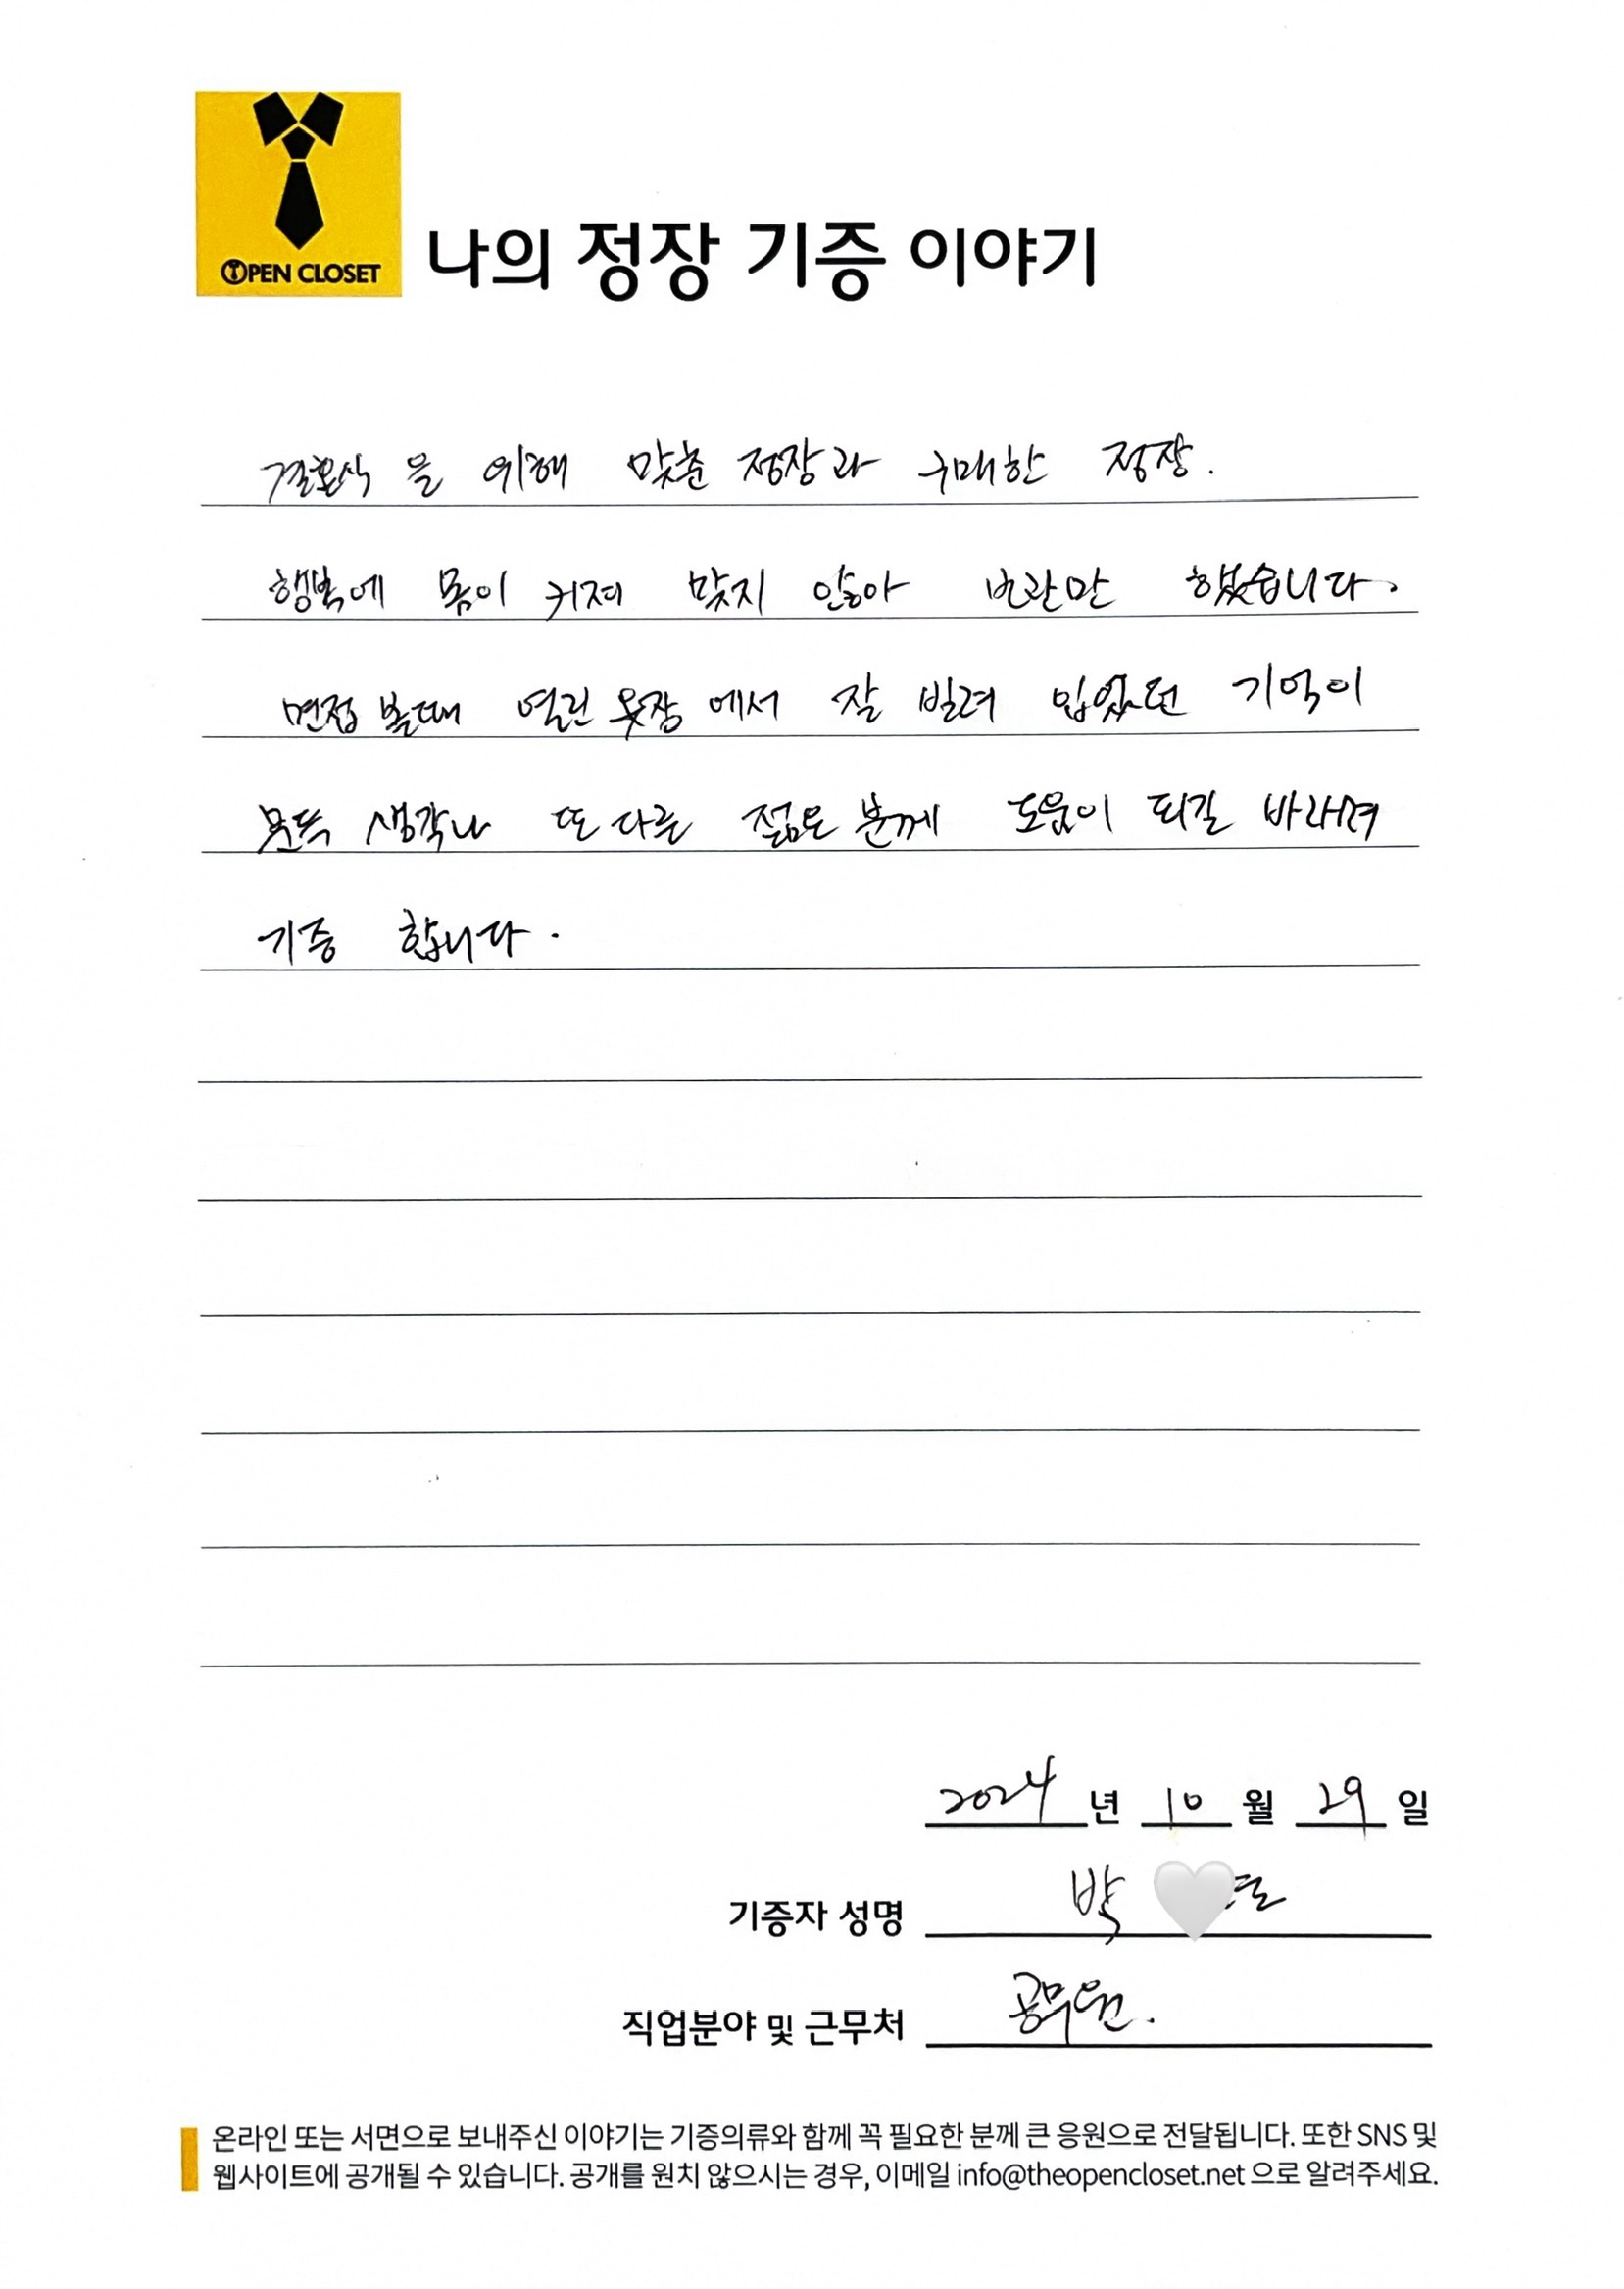 OPEN CLOSET
나의 정장 기증 이야기
결혼식 을 위해 맞춘 정장과 구매한 정장.
행복에 몸이 커져 맞지 않아 보관만 했습니다.
면접 볼때 열린 옷장 에서 잘 빌려 입었던 기억이
문득 생각나 또 다른 젊은 분께 도움이 되길 바래며
기증 합니다.
2024 년 10 월 29 일
기증자 성명 박
직업분야 및 근무처 공무원.
온라인 또는 서면으로 보내주신 이야기는 기증의류와 함께 꼭 필요한 분께 큰 응원으로 전달됩니다. 또한 SNS 및
웹사이트에 공개될 수 있습니다. 공개를 원치 않으시는 경우, 이메일 info@theopencloset.net 으로 알려주세요.